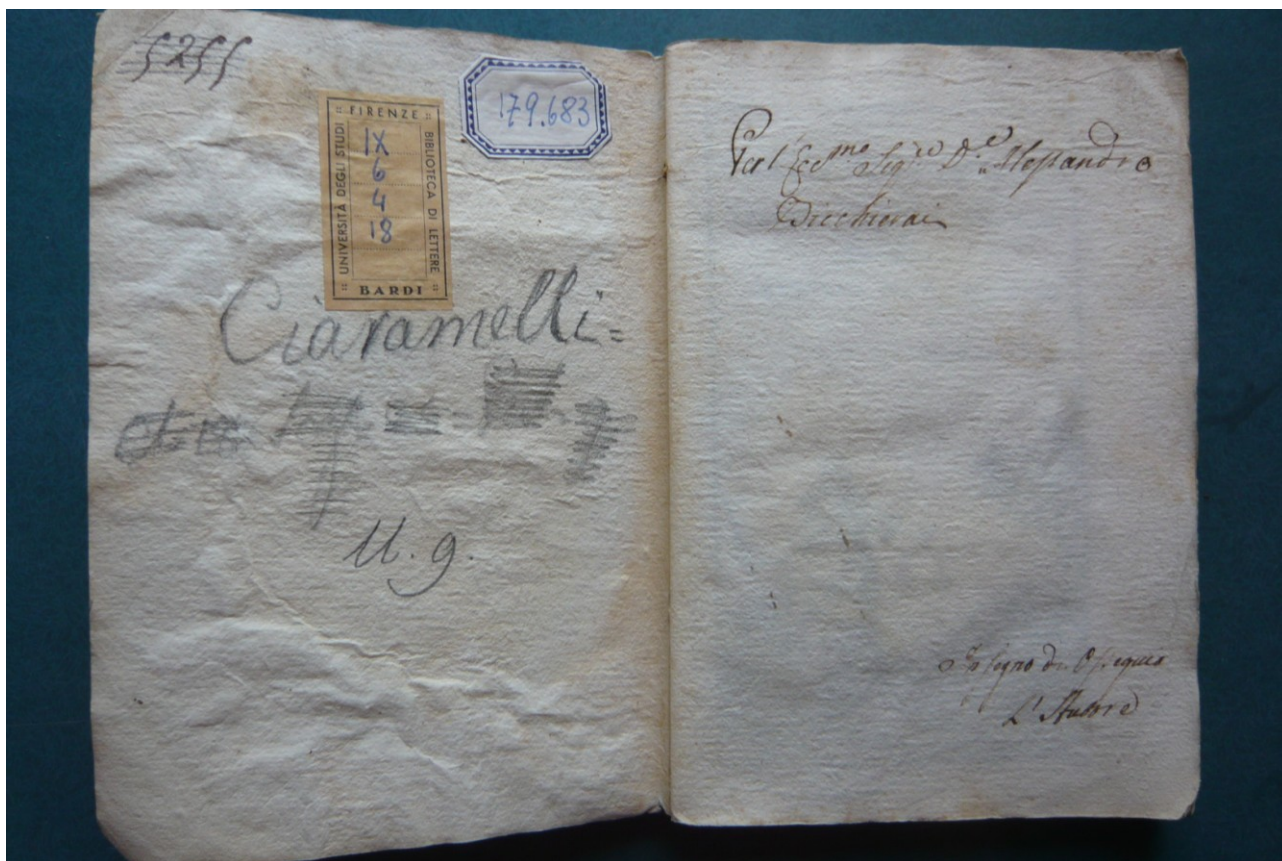 5255
FIRENZE
UNIVERSITÀ DEGLI STUDI
BIBLIOTECA DI LETTERE
IX
6
4
18
BARDI
179.683
Ciaramelli=
U. g.
Per l'Ecc.mo Sig.re D.re Alessandro
Bicchierai
In segno di Ossequio
L'Autore